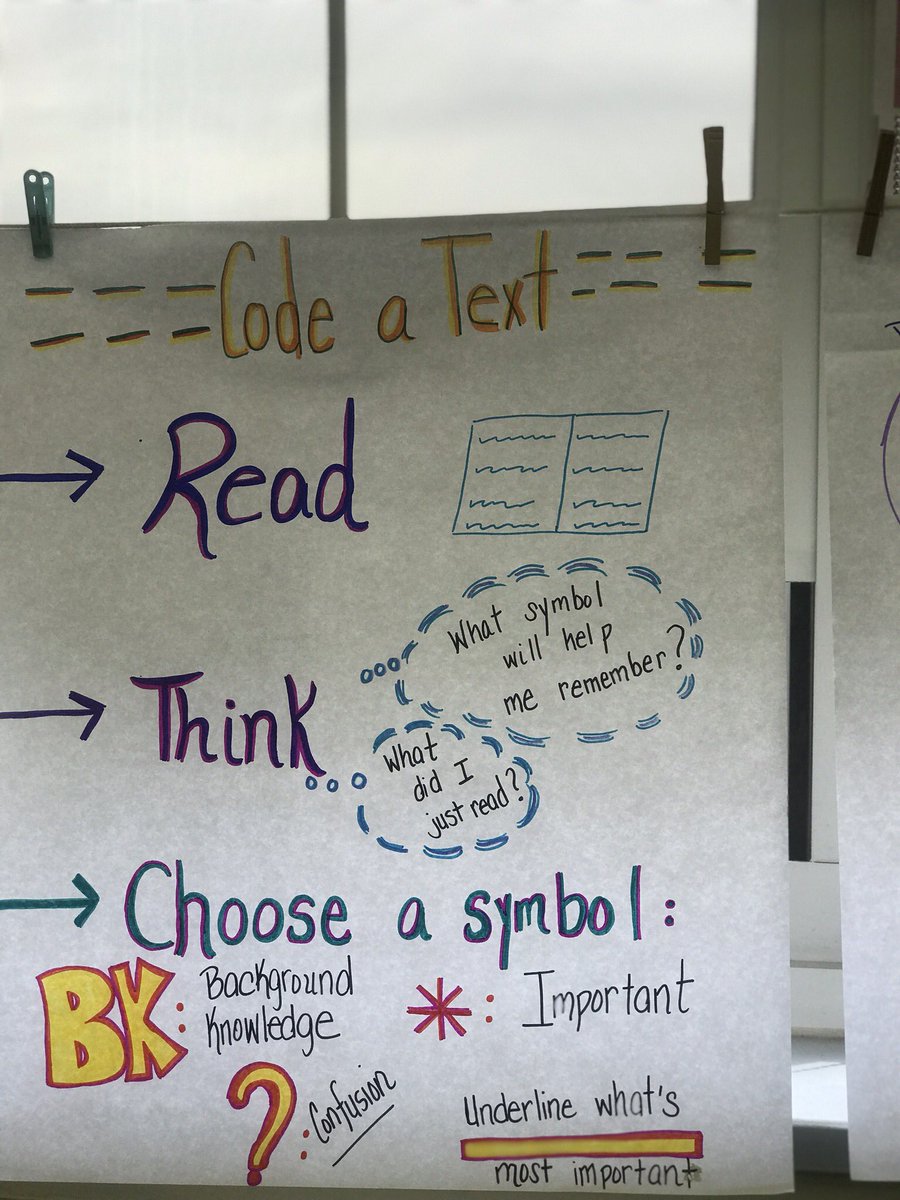 Code a Text
Read
What symbol
will help
me remember?
Think
What
did I
just read?
Choose a symbol:
BK: Background
Knowledge
*: Important
?: Confusion
Underline what's
most important